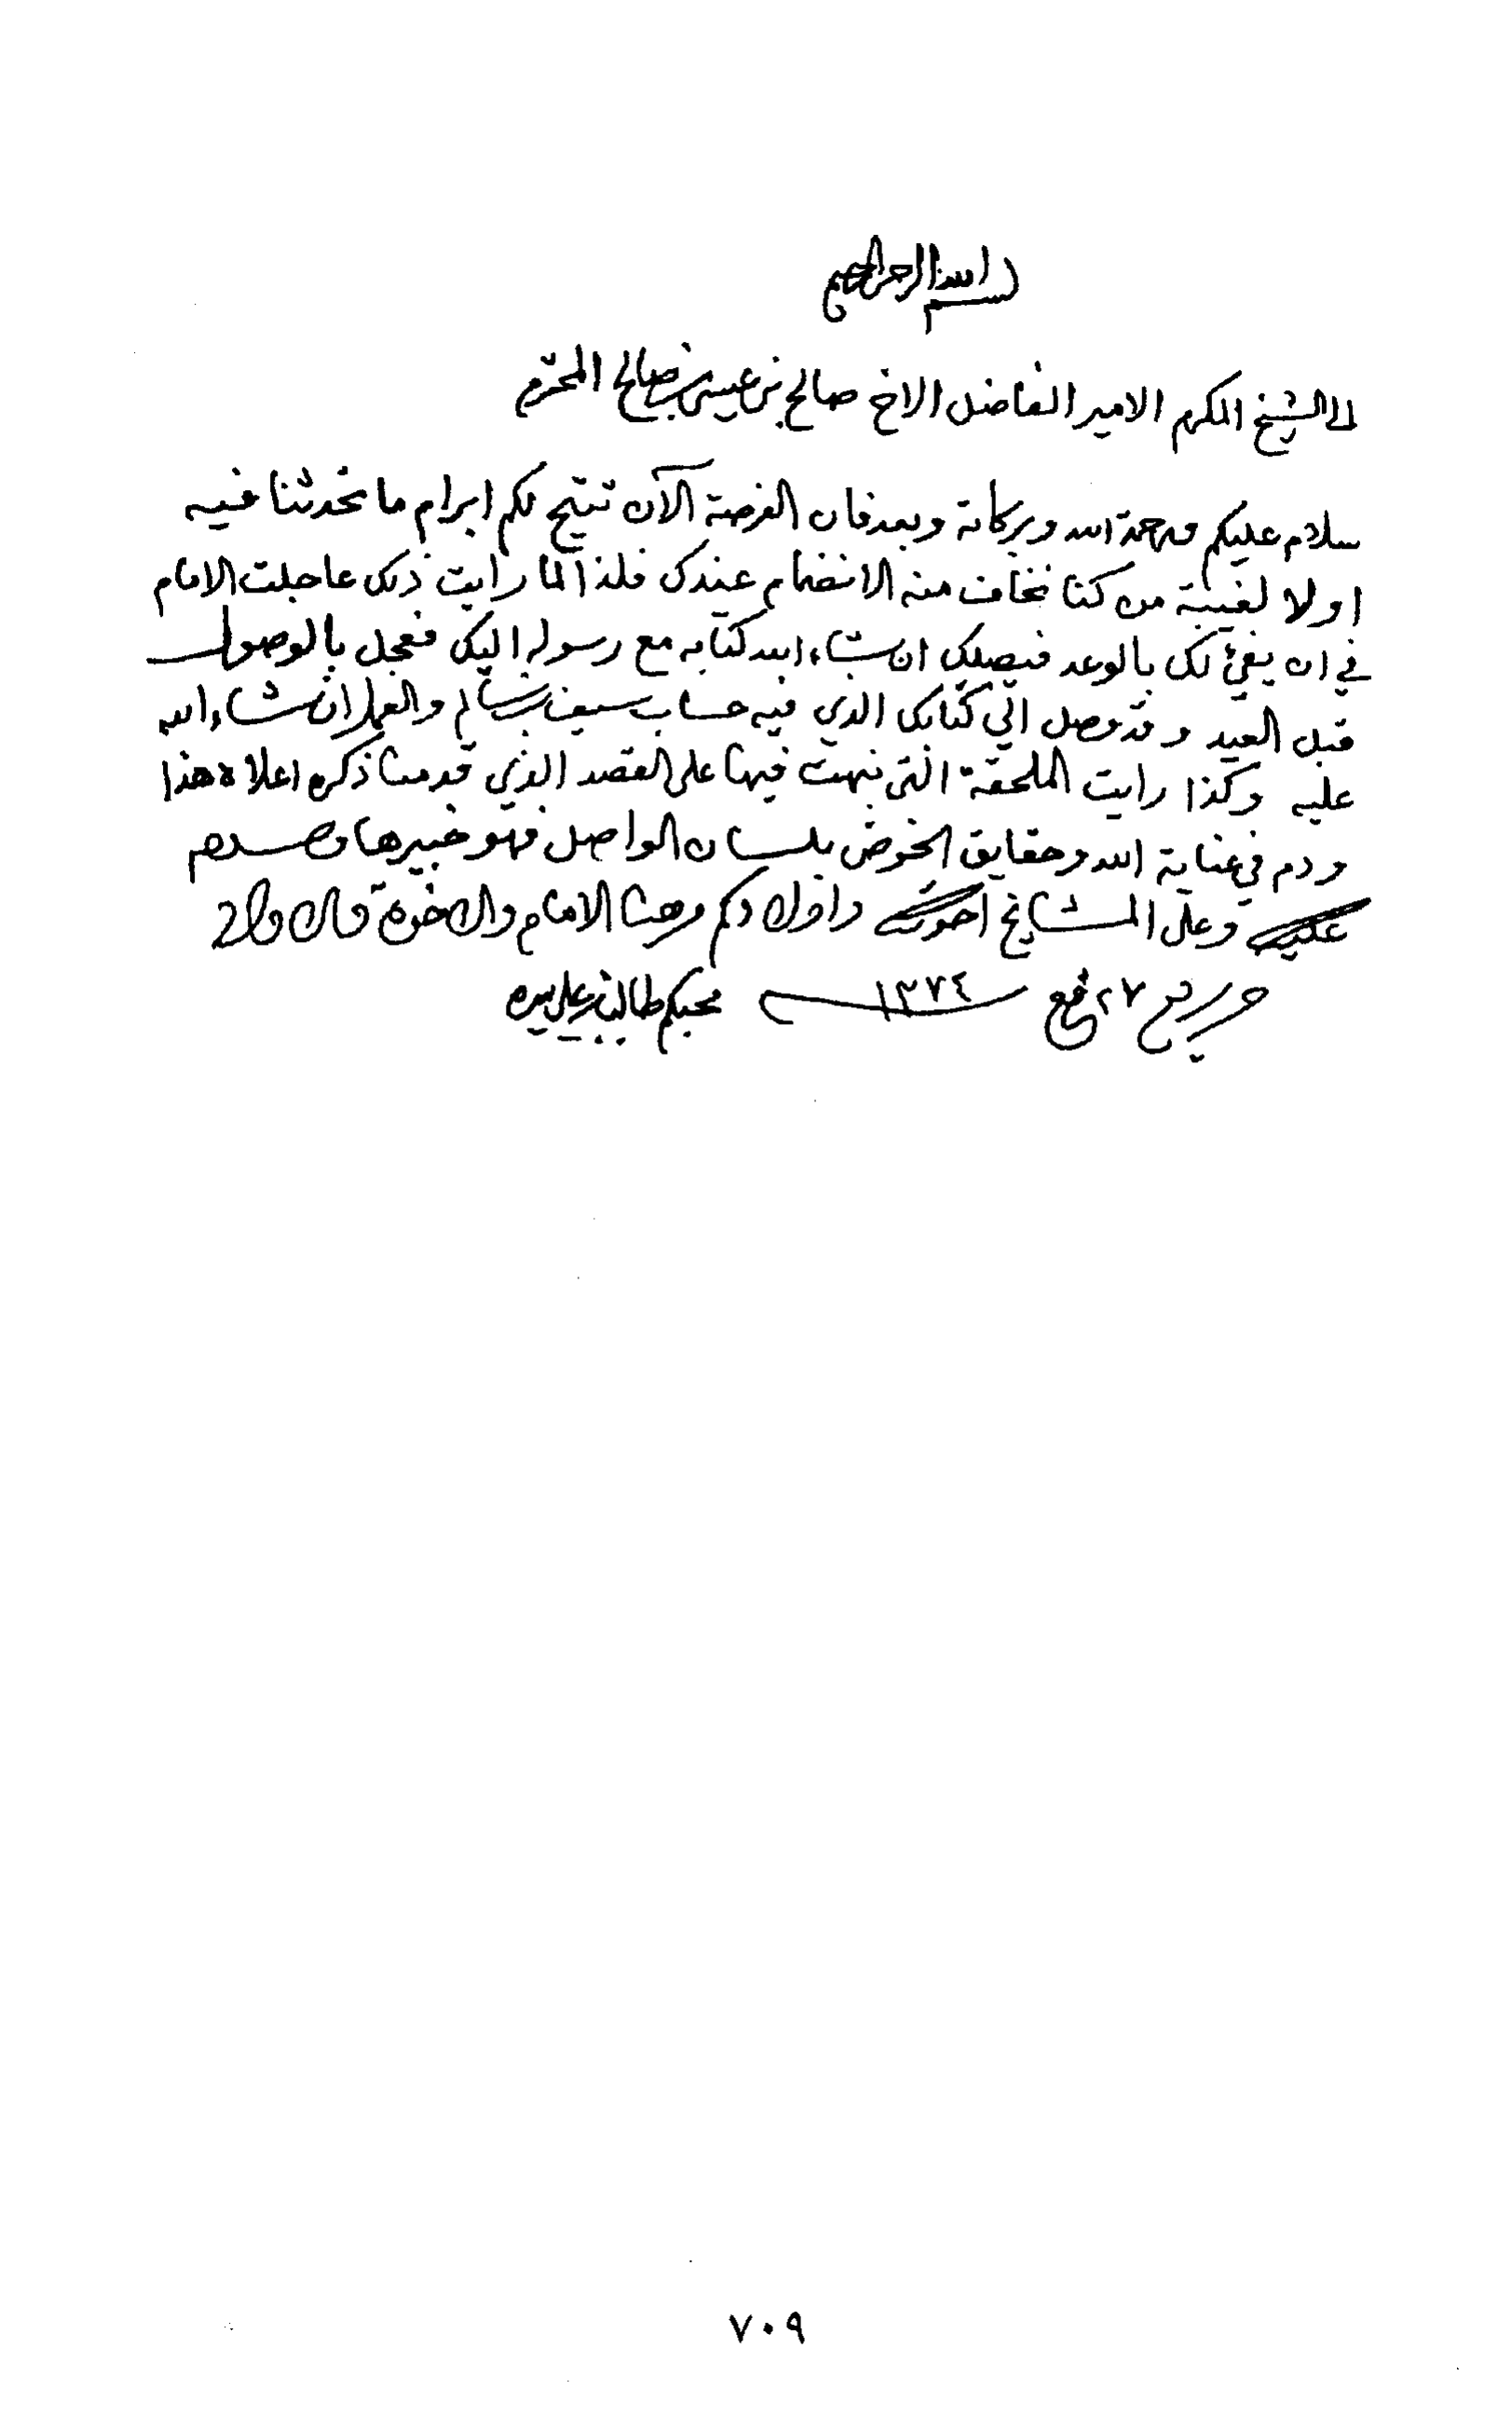 بسم الله الرحمن الرحيم
الى الشيخ المكرم الامير الفاضل الاخ صالح بن عيسى بن صالح المحترم
سلام عليكم ورحمة الله وبركاته وبعد فان الفرصة الآن تتيح لكم ابرام ما تحدثنا فيه
اولا لغيبة من كنا نخاف منه الانضمام عندك فلذا لما رايت ذلك عاجلت الامام
في ان يفيء لك بالوعد فيصلك ان شاء الله كتابه مع رسوله اليك فعجل بالوصول
قبل العيد وقد وصل الي كتابك الذي فيه حساب سيف بن سالم والعمل ان شاء الله
عليه وكذا رايت الملحقة التي نبهت فيها على القصد الذي قدمنا ذكره اعلاه هذا
ودم في عناية الله وحقايق الخوض بلسان الواصل فهو خبيرها وسلام
عليك وعلى المشايخ اخوتك واولادكم وهنا الامام والاخوة والاولاد
حرر يوم ٢٧ ١٣٧٤ محبكم طالب بن علي بيده
٧٠٩